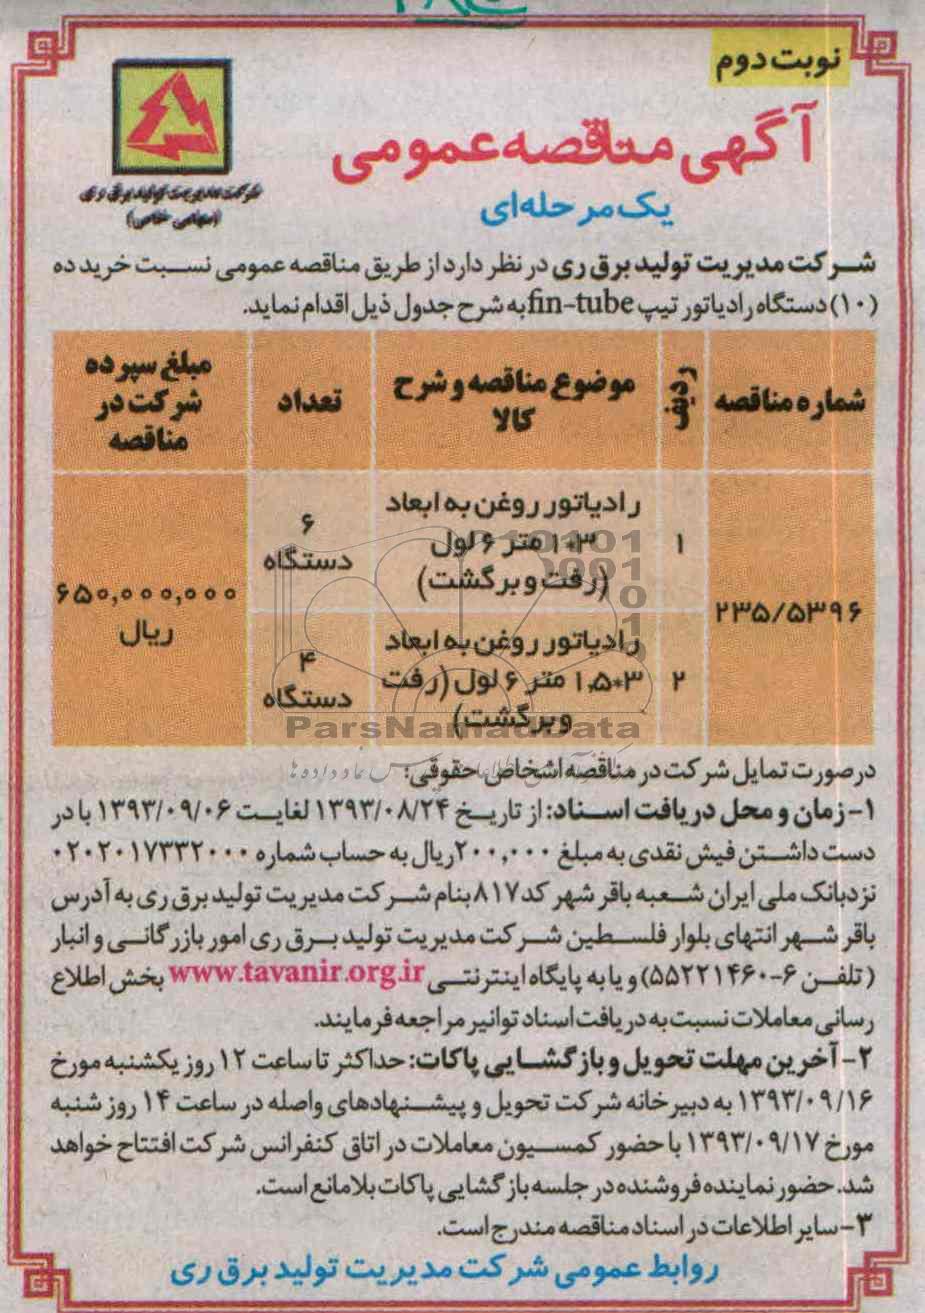 نوبت دوم
آگهی مناقصه عمومی
یک مرحله‌ای
شرکت مدیریت تولید برق ری
(سهامی خاص)
شرکت مدیریت تولید برق ری در نظر دارد از طریق مناقصه عمومی نسبت خرید ده
(۱۰) دستگاه رادیاتور تیپ fin-tube به شرح جدول ذیل اقدام نماید.
شماره مناقصه
ردیف
موضوع مناقصه و شرح
کالا
تعداد
مبلغ سپرده
شرکت در
مناقصه
۲۳۵/۵۳۹۶
۱
رادیاتور روغن به ابعاد
۳*۱ متر ۶ لول
(رفت و برگشت)
۶
دستگاه
۶۵۰,۰۰۰,۰۰۰
ریال
۲
رادیاتور روغن به ابعاد
۳*۱,۵ متر ۶ لول (رفت
و برگشت)
۴
دستگاه
ParsNamadData
در صورت تمایل شرکت در مناقصه اشخاص حقوقی:
۱- زمان و محل دریافت اسناد: از تاریخ ۱۳۹۳/۰۸/۲۴ لغایت ۱۳۹۳/۰۹/۰۶ با در
دست داشتن فیش نقدی به مبلغ ۲۰۰,۰۰۰ ریال به حساب شماره ۰۲۰۲۰۱۷۳۳۲۰۰۰
نزد بانک ملی ایران شعبه باقر شهر کد ۸۱۷ بنام شرکت مدیریت تولید برق ری به آدرس
باقر شهر انتهای بلوار فلسطین شرکت مدیریت تولید برق ری امور بازرگانی و انبار
(تلفن ۶-۵۵۲۲۱۴۶۰) و یا به پایگاه اینترنتی www.tavanir.org.ir بخش اطلاع
رسانی معاملات نسبت به دریافت اسناد توانیر مراجعه فرمایند.
۲- آخرین مهلت تحویل و بازگشایی پاکات: حداکثر تا ساعت ۱۲ روز یکشنبه مورخ
۱۳۹۳/۰۹/۱۶ به دبیرخانه شرکت تحویل و پیشنهادهای واصله در ساعت ۱۴ روز شنبه
مورخ ۱۳۹۳/۰۹/۱۷ با حضور کمسیون معاملات در اتاق کنفرانس شرکت افتتاح خواهد
شد. حضور نماینده فروشنده در جلسه بازگشایی پاکات بلامانع است.
۳- سایر اطلاعات در اسناد مناقصه مندرج است.
روابط عمومی شرکت مدیریت تولید برق ری